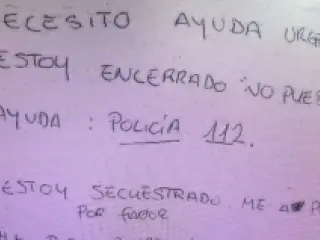 ECESITO AYUDA URGE
ESTOY ENCERRADO NO PUE
AYUDA : POLICÍA 112.
ESTOY SECUESTRADO. ME A
POR favor